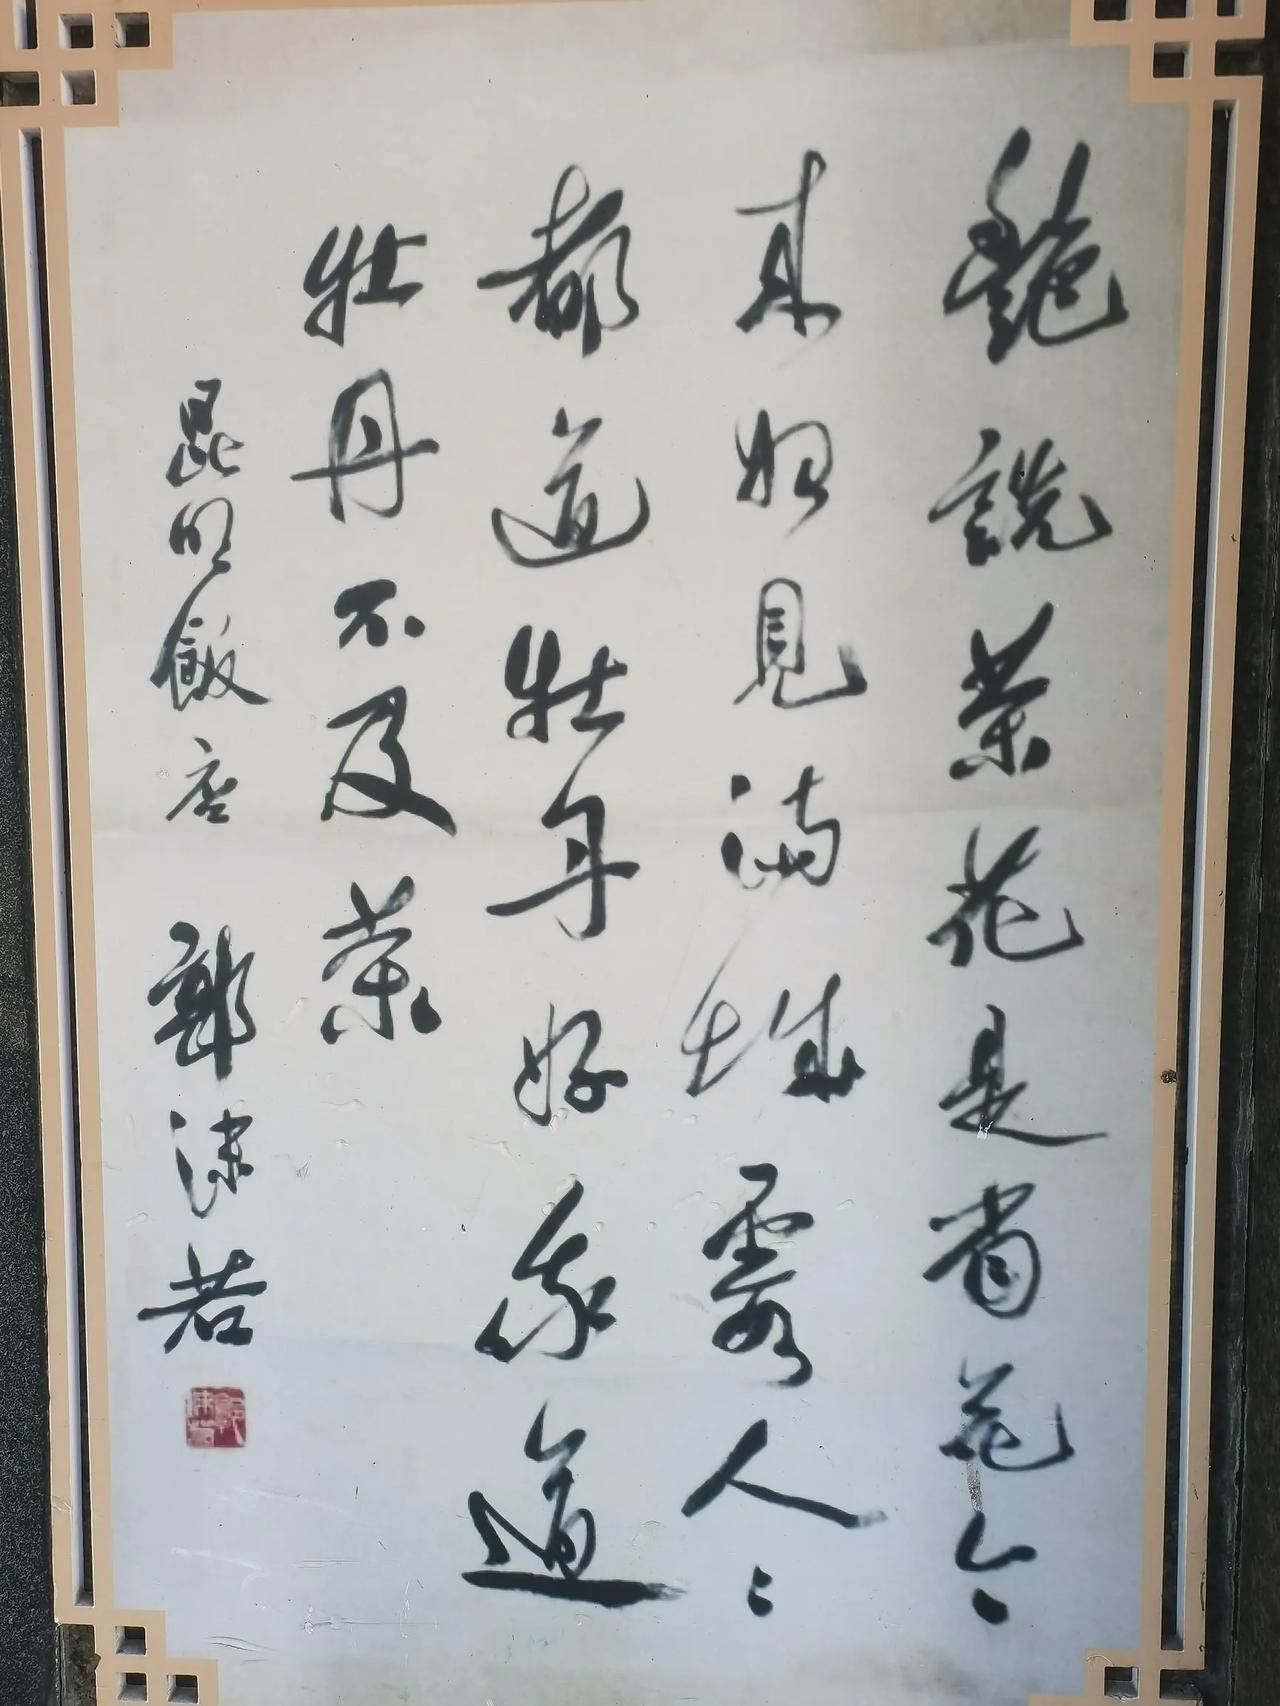 艷說茶花是省花今
来始見滿城霞人〻
都道牡丹好我道
牡丹不及茶
昆明飯店 郭沫若
郭沫若